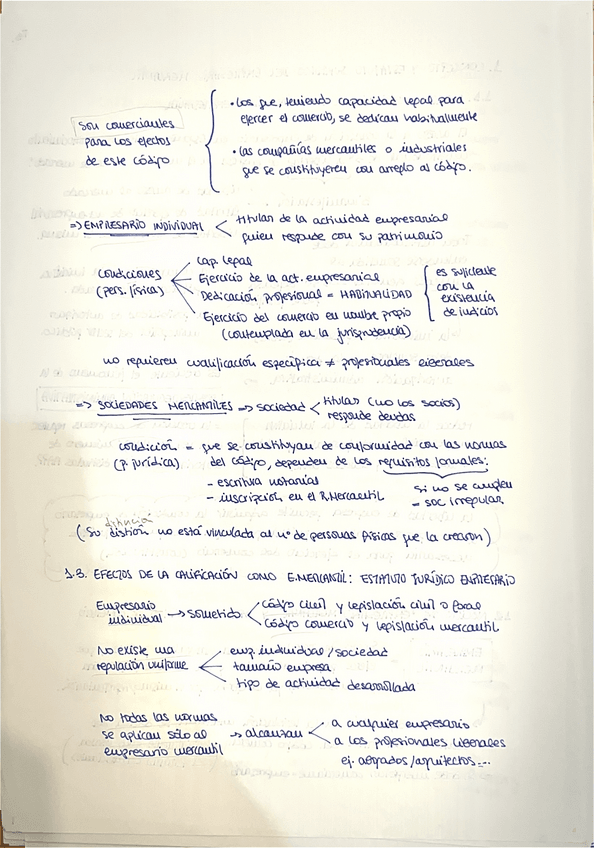 Son comerciantes
para los efectos
de este código
• Los que, teniendo capacidad legal para
ejercer el comercio, se dedican habitualmente
• Las compañías mercantiles o industriales
que se constituyeren con arreglo al código.
=> EMPRESARIO INDIVIDUAL
titular de la actividad empresarial
quien responde con su patrimonio
condiciones
(pers. física)
Cap. legal
Ejercicio de la act. empresarial
Dedicación profesional = HABITUALIDAD
Ejercicio del comercio en nombre propio
(contemplada en la jurisprudencia)
es suficiente
con la
existencia
de indicios
no requieren cualificación específica ≠ profesionales liberales
=> SOCIEDADES MERCANTILES => sociedad
titular (no los socios)
responde deudas
condición = que se constituyan de conformidad con las normas
(p. jurídica) del código, dependen de los requisitos formales:
- escritura notarias
- inscripción en el R.Mercantil
si no se cumplen
= soc irregular
distinción
(Su distión no está vinculada al nº de personas físicas que la crearon)
1.3. EFECTOS DE LA CALIFICACIÓN COMO E.MERCANTIL: ESTATUTO JURÍDICO EMPRESARIO
Empresario
individual → sometido
código civil y legislación civil o foral
código comercio y legislación mercantil
No existe una
regulación uniforme
emp. individual / sociedad
tamaño empresa
tipo de actividad desarrollada
No todas las normas
se aplican sólo al
empresario mercantil
→ alcanzan
a cualquier empresario
a los profesionales liberales
ej. abogados/arquitectos...